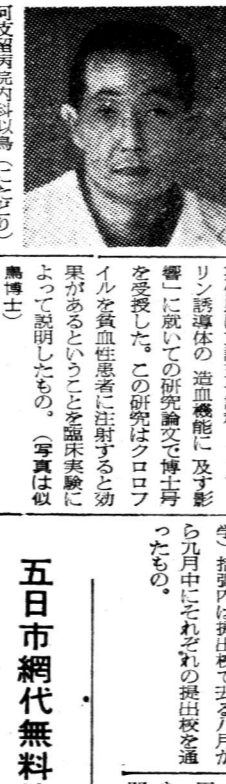 阿伎留病院内科似鳥（にたどり）
リン誘導体の 造血機能に 及す影
響」に就いての研究論文で博士号
を受授した。この研究はクロロフ
イルを貧血性患者に注射すると効
果があるということを臨床実験に
よって説明したもの。（写真は似
鳥博士）
学）括弧内は提出校で去る八月か
ら九月中にそれぞれの提出校を通
ったもの。
五日市網代無料